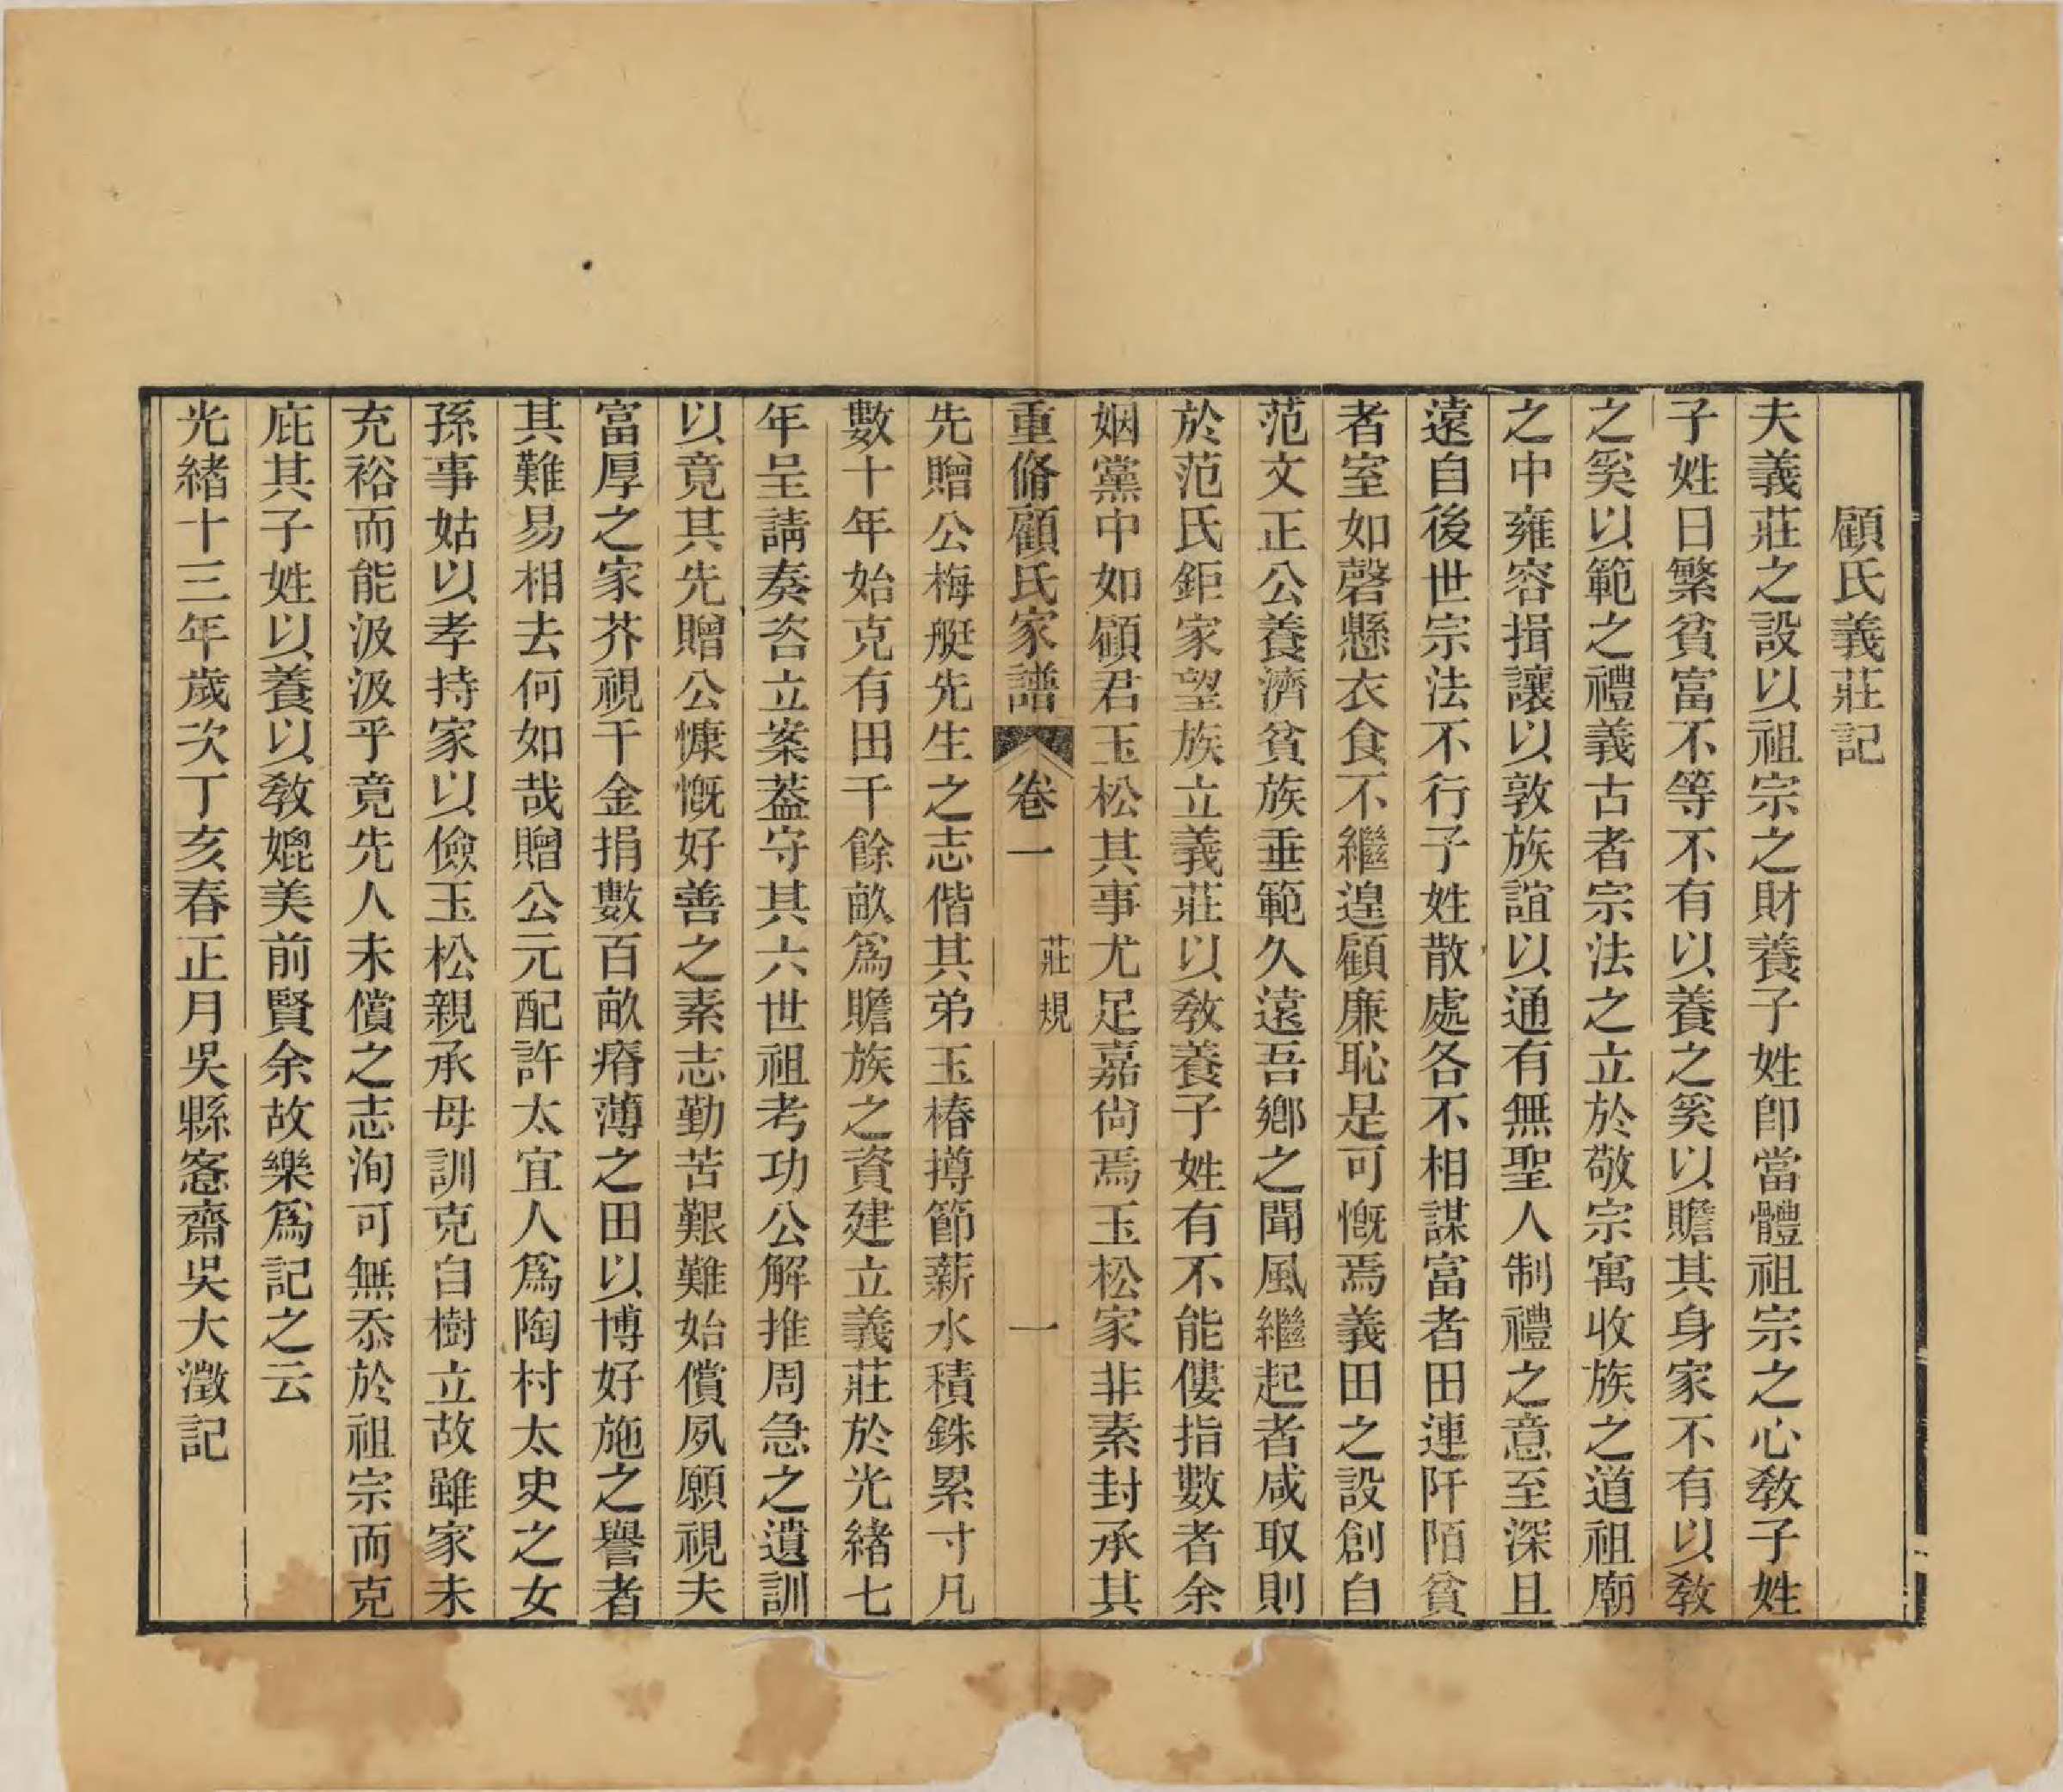 顧氏義莊記
夫義莊之設以祖宗之財養子姓卽當體祖宗之心敎子姓
子姓日繁貧富不等不有以養之奚以贍其身家不有以敎
之奚以範之禮義古者宗法之立於敬宗寓收族之道祖廟
之中雍容揖讓以敦族誼以通有無聖人制禮之意至深且
遠自後世宗法不行子姓散處各不相謀富者田連阡陌貧
者室如磬懸衣食不繼遑顧廉恥是可慨焉義田之設創自
范文正公養濟貧族垂範久遠吾鄉之聞風繼起者咸取則
於范氏鉅家望族立義莊以敎養子姓有不能僂指數者余
姻黨中如顧君玉松其事尤足嘉尙焉玉松家非素封承其
重脩顧氏家譜 卷一 莊規 一
先贈公梅艇先生之志偕其弟玉椿撙節薪水積銖累寸凡
數十年始克有田千餘畝爲贍族之資建立義莊於光緒七
年呈請奏咨立案葢守其六世祖考功公解推周急之遺訓
以竟其先贈公慷慨好善之素志勤苦艱難始償夙願視夫
富厚之家芥視千金捐數百畝瘠薄之田以博好施之譽者
其難易相去何如哉贈公元配許太宜人爲陶村太史之女
孫事姑以孝持家以儉玉松親承母訓克自樹立故雖家未
充裕而能汲汲乎竟先人未償之志洵可無忝於祖宗而克
庇其子姓以養以敎媲美前賢余故樂爲記之云
光緒十三年歲次丁亥春正月吳縣愙齋吳大澂記